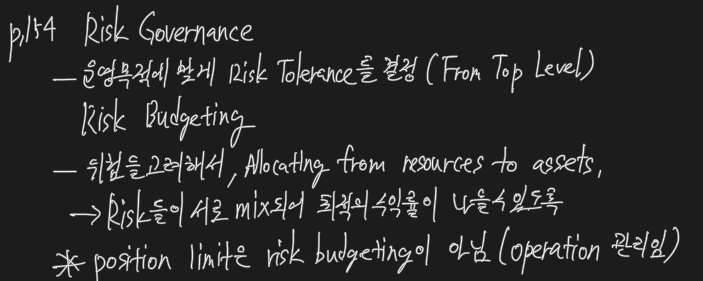 p.154 Risk Governance
— 운영목적에 맞게 Risk Tolerance를 결정 (From Top Level)
Risk Budgeting
— 위험을 고려해서, Allocating from resources to assets,
→ Risk들이 서로 mix되어 최적의 수익률이 나올수있도록
* position limit은 risk budgeting이 아님 (operation 관리임)